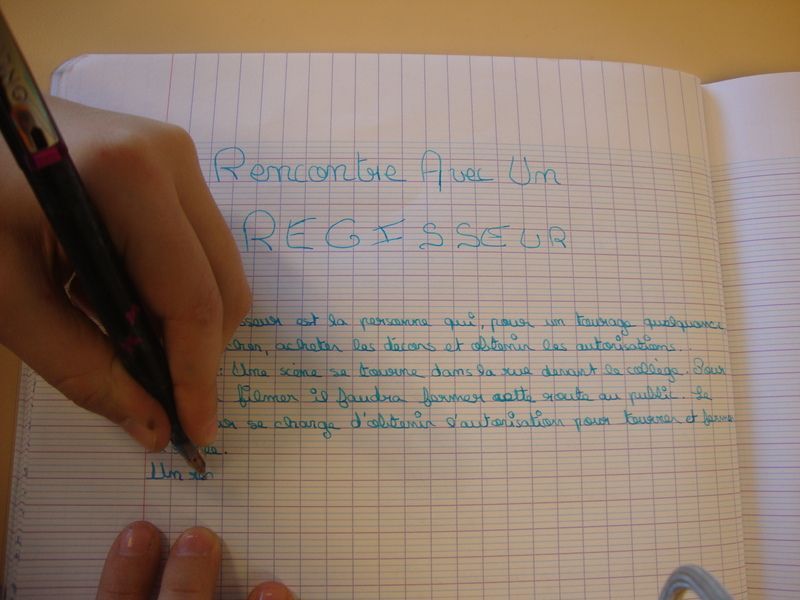 Rencontre Avec Un
REGISSEUR
est la personne qui, pour un tourage quelquonce
acheter les décors et obtenir les autorisations.
: Une scène se tourne dans la rue devant le collège. Pour
filmer il faudra fermer cette route au public. Le
se charge d'obtenir d'autorisation pour tourner et fermer
Un